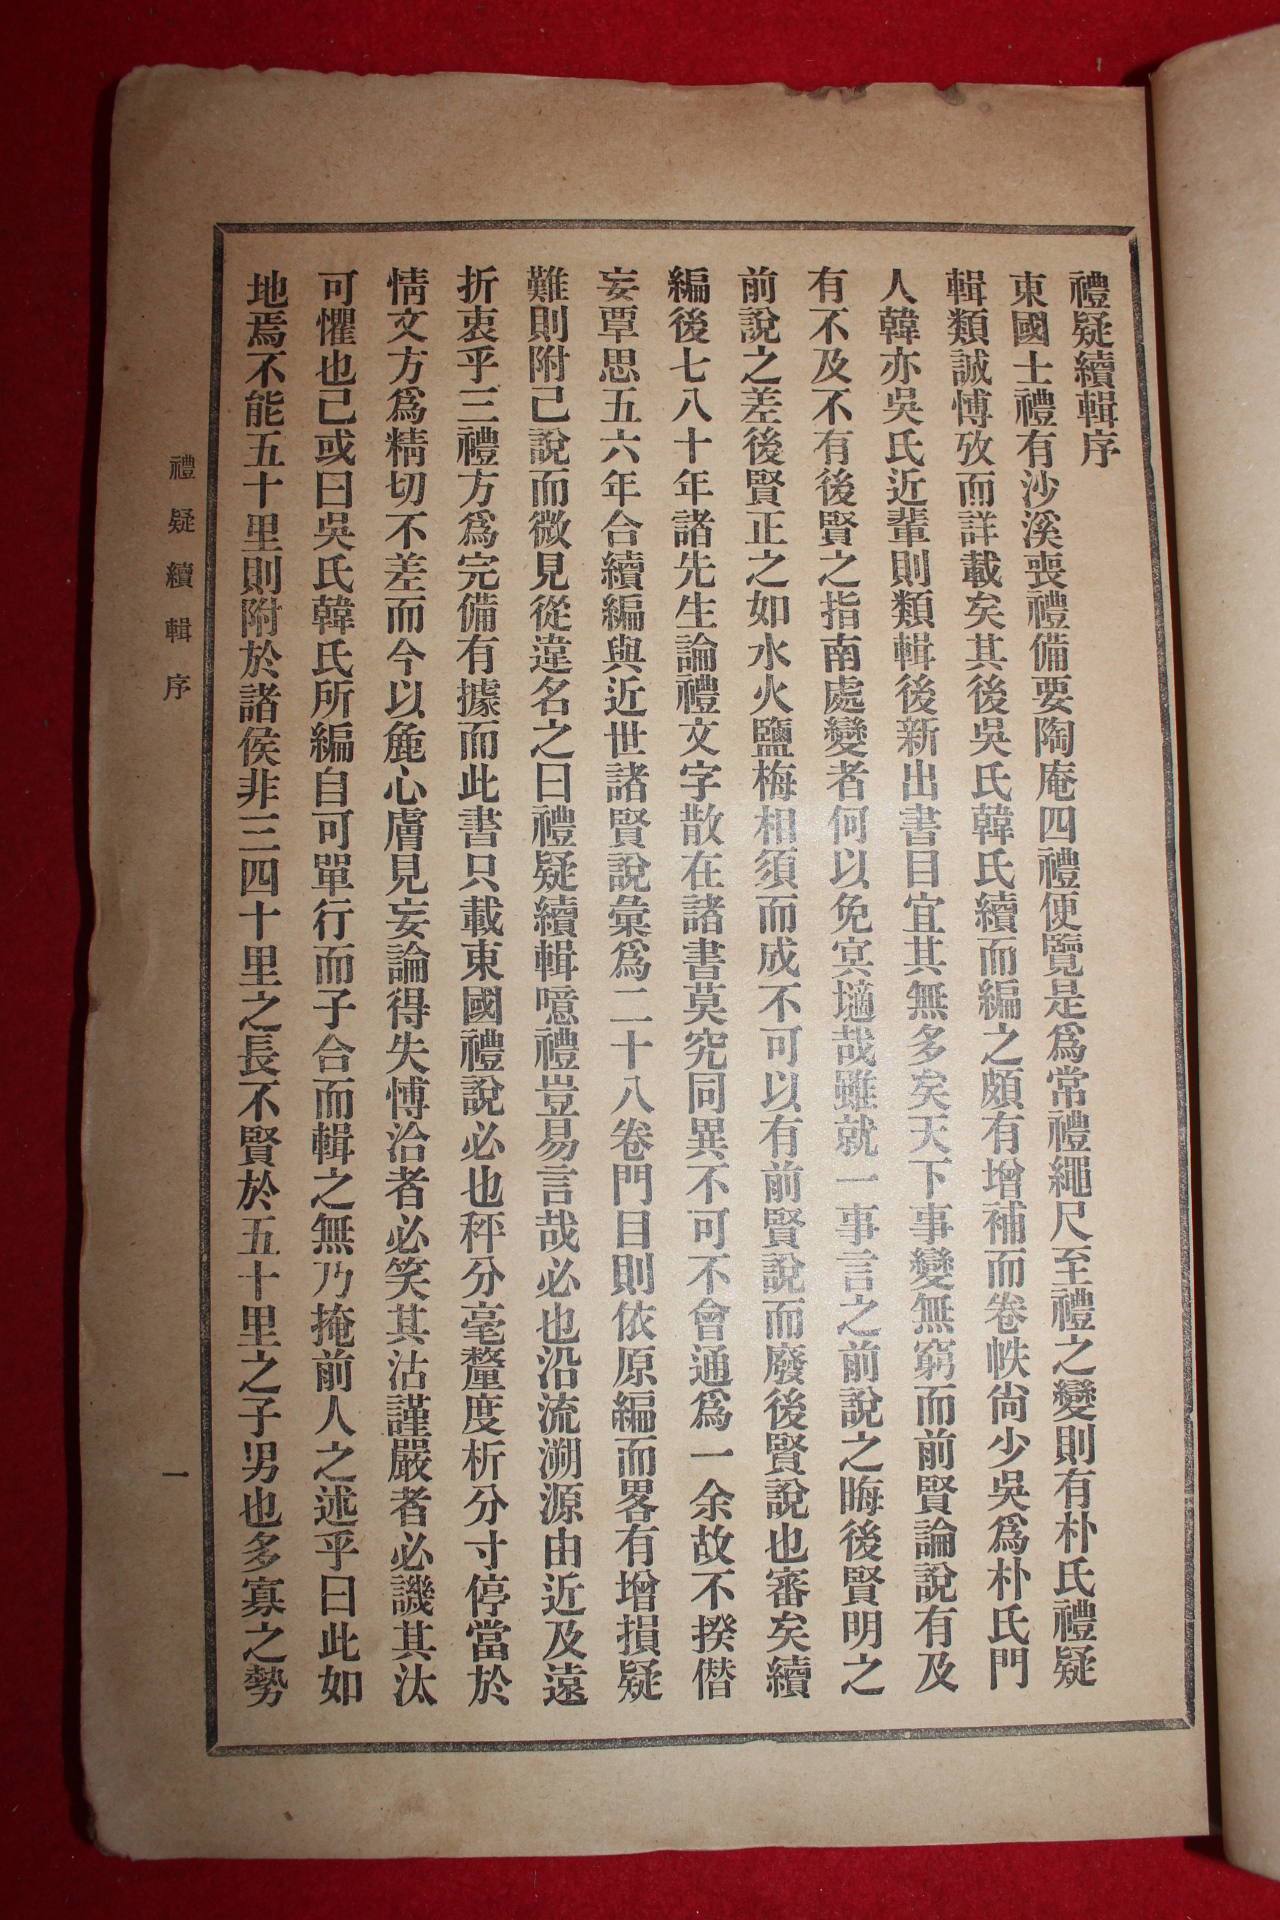 禮疑續輯序
東國士禮有沙溪喪禮備要陶庵四禮便覽是爲常禮繩尺至禮之變則有朴氏禮疑
輯類誠愽攷而詳載矣其後吳氏韓氏續而編之頗有增補而卷帙尙少吳爲朴氏門
人韓亦吳氏近輩則類輯後新出書目宜其無多矣天下事變無窮而前賢論說有及
有不及不有後賢之指南處變者何以免冥擿哉雖就一事言之前說之晦後賢明之
前說之差後賢正之如水火鹽梅相須而成不可以有前賢說而廢後賢說也審矣續
編後七八十年諸先生論禮文字散在諸書莫究同異不可不會通爲一余故不揆僣
妄覃思五六年合續編與近世諸賢說彙爲二十八卷門目則依原編而畧有增損疑
難則附己說而微見從違名之曰禮疑續輯噫禮豈易言哉必也沿流溯源由近及遠
折衷乎三禮方爲完備有據而此書只載東國禮說必也秤分毫釐度析分寸停當於
情文方爲精切不差而今以麁心膚見妄論得失愽洽者必笑其沽謹嚴者必譏其汰
可懼也已或曰吳氏韓氏所編自可單行而子合而輯之無乃掩前人之述乎曰此如
地焉不能五十里則附於諸侯非三四十里之長不賢於五十里之子男也多寡之勢
禮疑續輯序
一